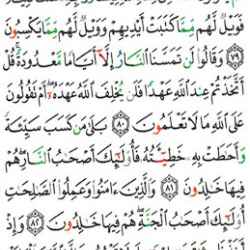 فَوَيْلٌ لَّهُم مِّمَّا كَتَبَتْ أَيْدِيهِمْ وَوَيْلٌ لَّهُم مِّمَّا يَكْسِبُونَ
﴿٧٩﴾ وَقَالُوا۟ لَن تَمَسَّنَا ٱلنَّارُ إِلَّآ أَيَّامًا مَّعْدُودَةً ۚ قُلْ
أَتَّخَذْتُمْ عِندَ ٱللَّهِ عَهْدًا فَلَن يُخْلِفَ ٱللَّهُ عَهْدَهُۥٓ ۖ أَمْ تَقُولُونَ
عَلَى ٱللَّهِ مَا لَا تَعْلَمُونَ ﴿٨٠﴾ بَلَىٰ مَن كَسَبَ سَيِّئَةً
وَأَحَٰطَتْ بِهِۦ خَطِيٓـَٔتُهُۥ فَأُو۟لَٰٓئِكَ أَصْحَٰبُ ٱلنَّارِ ۖ هُمْ
فِيهَا خَٰلِدُونَ ﴿٨١﴾ وَٱلَّذِينَ ءَامَنُوا۟ وَعَمِلُوا۟ ٱلصَّٰلِحَٰتِ
أُو۟لَٰٓئِكَ أَصْحَٰبُ ٱلْجَنَّةِ ۖ هُمْ فِيهَا خَٰلِدُونَ ﴿٨٢﴾ وَإِذْ